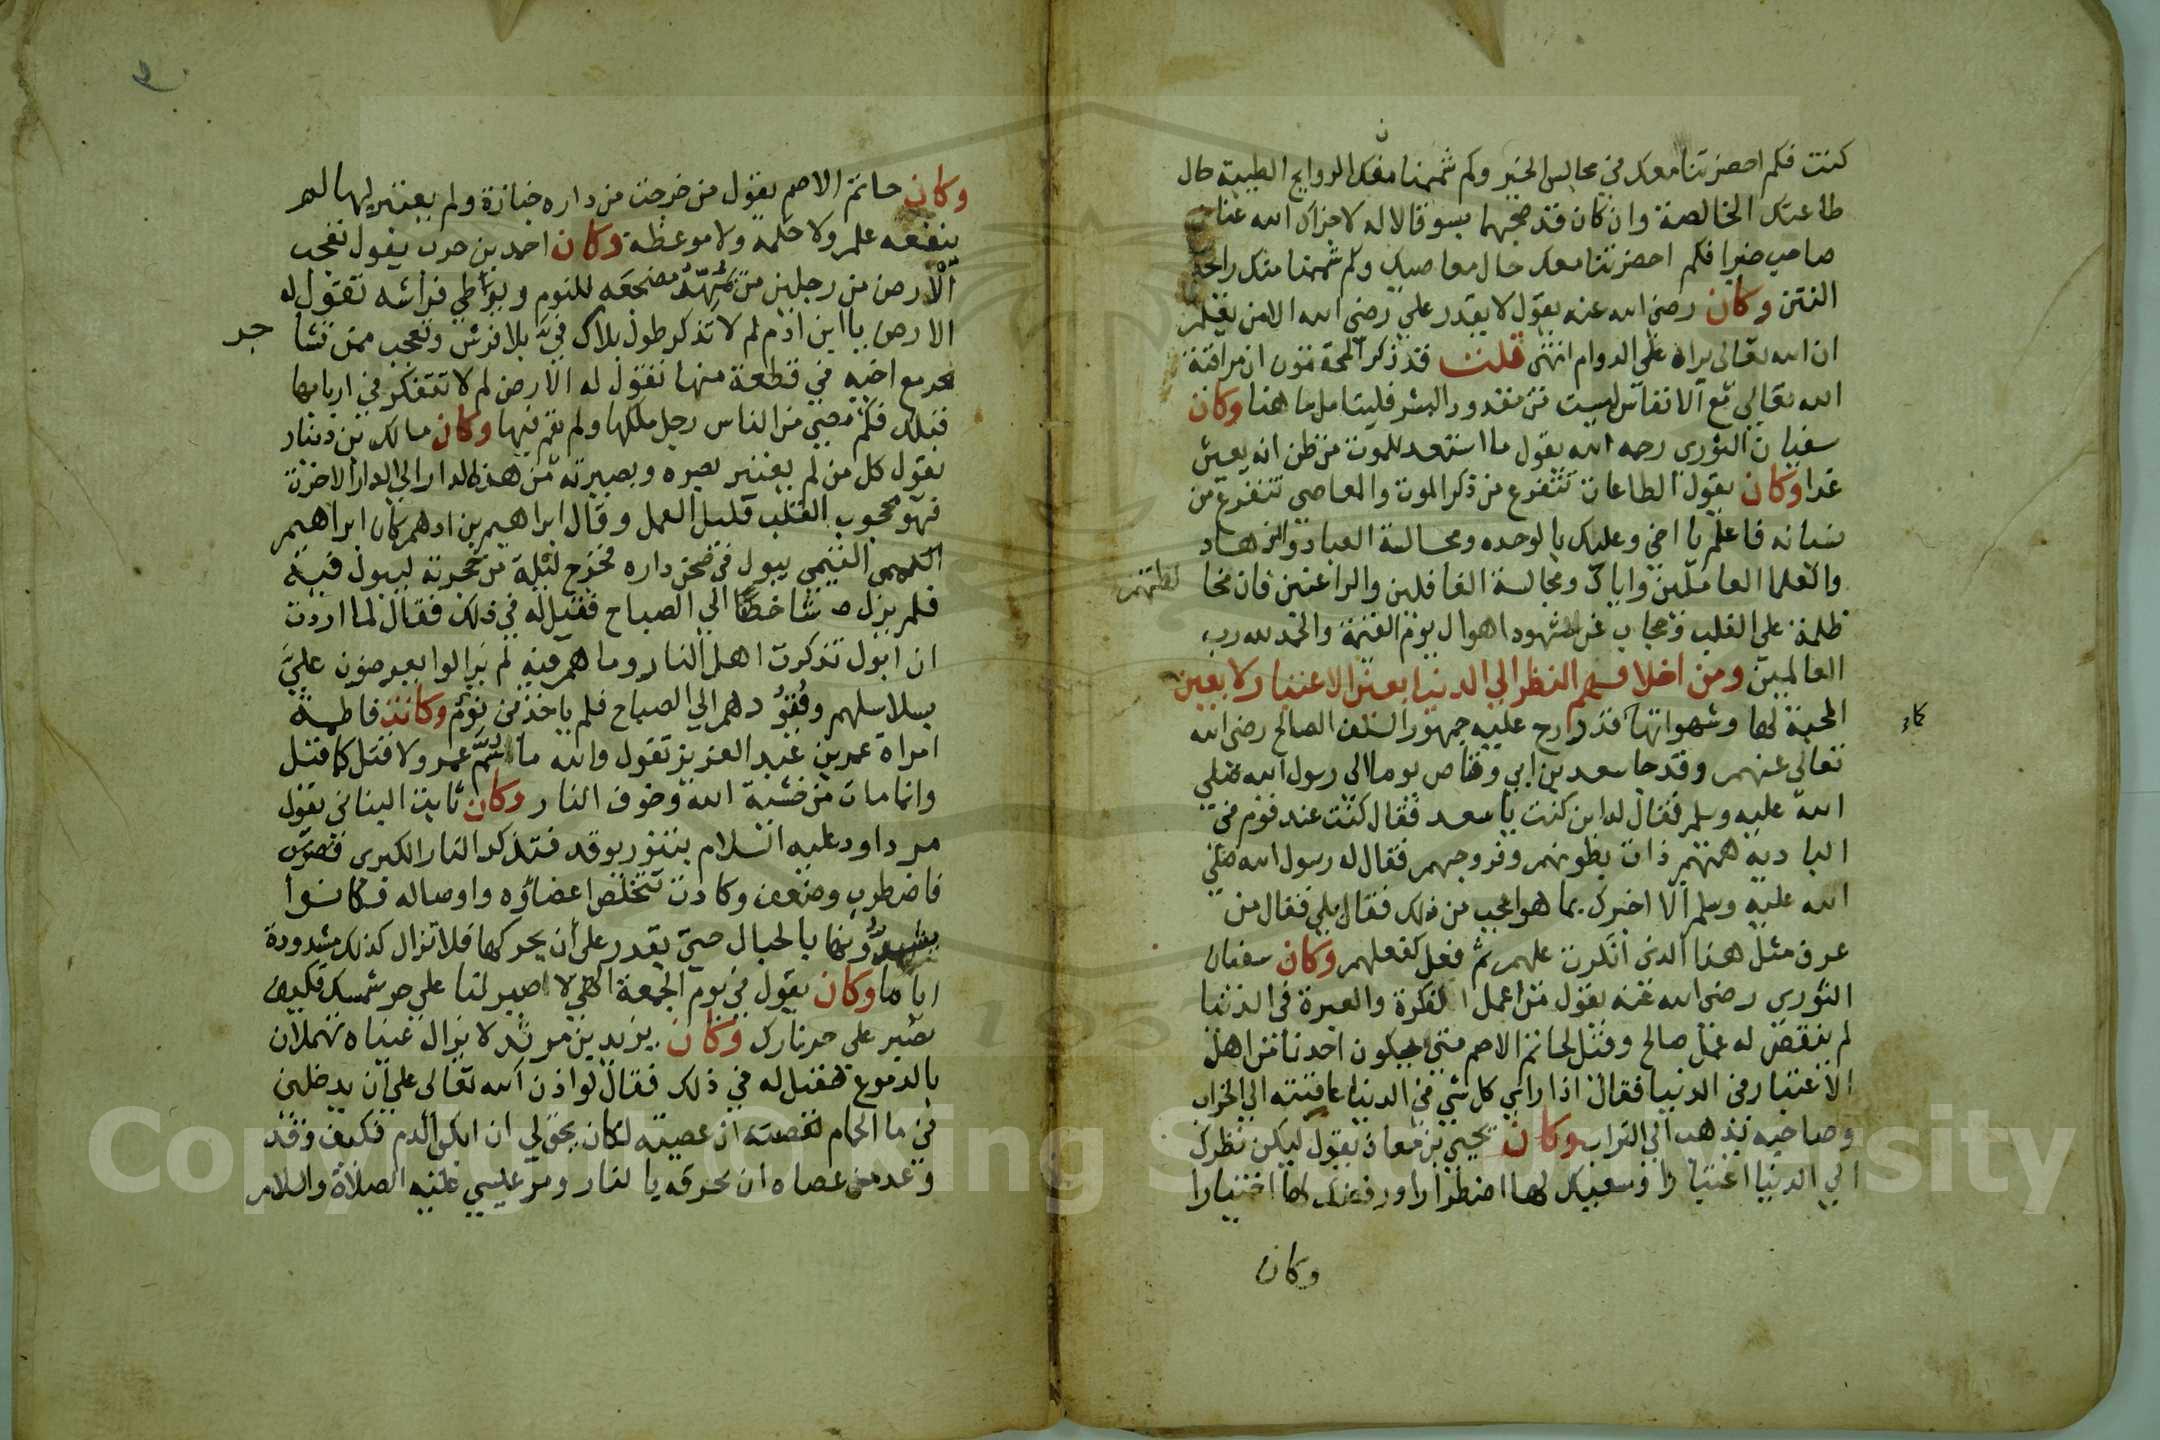 كنت فكم احضرتنا معك في مجالس الخير وكم شممنا منك الروايح الطيبة حال
طاعتك الخالصة وان كان قد صحبهما بسو قالا له لا جزاك الله عنا من
صاحب خيرا فكم احضرتنا معك حال معاصيك وكم شممنا منك رائحة
النتن وكان رضي الله عنه يقول لا يقدر علي رضي الله الا من يعلم
ان الله تعالى يراه علي الدوام انتهى قلت قد ذكر المحققون ان مراقبة
الله تعالي مع الانفاس ليست من مقدور البشر فليتامل ما هنا وكان
سفيان الثوري رحمه الله يقول ما استعد للموت من ظن انه يعيش
غدا وكان يقول الطاعات تتفرع من ذكر الموت والمعاصي تتفرع من
نسيانه فاعلم يا اخي وعليك بالوحده ومجالسة العباد والزهاد
والعلما العاملين واياك ومجالسة الغافلين والراغبين فان مخالطتهم
ظلمة علي القلب وحجاب عن شهود اهوال يوم القيمة والحمد لله رب
العالمين ومن اخلاقهم النظر الي الدنيا بعين الاعتبار لا بعين
المحبة لها وشهواتها كما قد درج عليه جمهور السلف الصالح رضي الله
تعالى عنهم وقد جا سعد بن ابي وقاص يوما الى رسول الله صلي
الله عليه وسلم فقال له اين كنت يا سعد فقال كنت عند قوم في
البادية همتهم ذات بطونهم وفروجهم فقال له رسول الله صلي
الله عليه وسلم الا اخبرك بما هو اعجب من ذلك فقال بلي فقال من
عرف مثل هذا الذى انكرت عليهم ثم فعل كفعلهم وكان سفيان
الثوري رضي الله عنه يقول من اعمل الفكرة والعبرة في الدنيا
لم ينقض له عمل صالح وقيل لحاتم الاصم متي يكون احدنا من اهل
الاعتبار في الدنيا فقال اذا راي كل شي في الدنيا عاقبته الي الخراب
وصاحبه يذهب الي التراب وكان يحيي بن معاذ يقول ليكن نظرك
الي الدنيا اعتبارا وسعيك لها اضطرارا ورفضك لها اختيارا
وكان
وكان حاتم الاصم يقول من خرجت من داره جنازة ولم يعتبر بها لم
ينفعه علم ولا حكمه ولا موعظة وكان احمد بن حرب يقول تعجب
الارض من رجلين من يمهد مضجعه للنوم ويوطي فراشه تقول له
الارض يا ابن ادم لم لا تذكر طول بلاك فيّ بلا فرش وتعجب ممن تشاجر
مع اخيه في قطعة منها تقول له الارض لم لا تتفكر في اربابها
قبلك فكم مضي من الناس رجل ملكها ولم يقم فيها وكان مالك بن دينار
يقول كل من لم يعتبر بصره وبصيرته من هذه الدار الي الدار الاخرة
فهو محجوب القلب قليل العمل وقال ابراهيم بن ادهم كان ابراهيم
التيمي يبول في صحن داره فخرج ليلة من حجرته ليبول فيه
فلم يزل شاخصا الي الصباح فقيل له في ذلك فقال لما اردت
ان ابول تذكرت اهل النار وما هم فيه لم يزالوا يعرضون عليَّ
بسلاسلهم وقيودهم الي الصباح فلم ياخذني نوم وكانت فاطمة
امراة عمر بن عبد العزيز تقول والله ما سُمَّ عمر ولا قتل كما قيل
وانما مات من خشية الله وخوف النار وكان ثابت البناني يقول
مر داود عليه السلام بتنور يوقد فتذكر النار الكبرى فصرخ
فاضطرب وضعف وكادت تتخلص اعضاؤه واوصاله فكانوا
يشدونها بالحبال حتي يقدر على أن يحركها فلا تزال كذلك مشدودة
اياما وكان يقول في يوم الجمعة الهي لا اصبر لنا علي حر شمسك فكيف
نصبر علي حر نارك وكان يزيد بن مرثد لا يزال عيناه تهملان
بالدموع فقيل له في ذلك فقال لو اذن الله تعالى علي أن يدخلني
في ما الحمام ان عصيته لكان يحق لي ان ابكي الدم فكيف وقد
وعد من عصاه ان يحرقه بالنار ومر عيسي عليه الصلاة والسلام